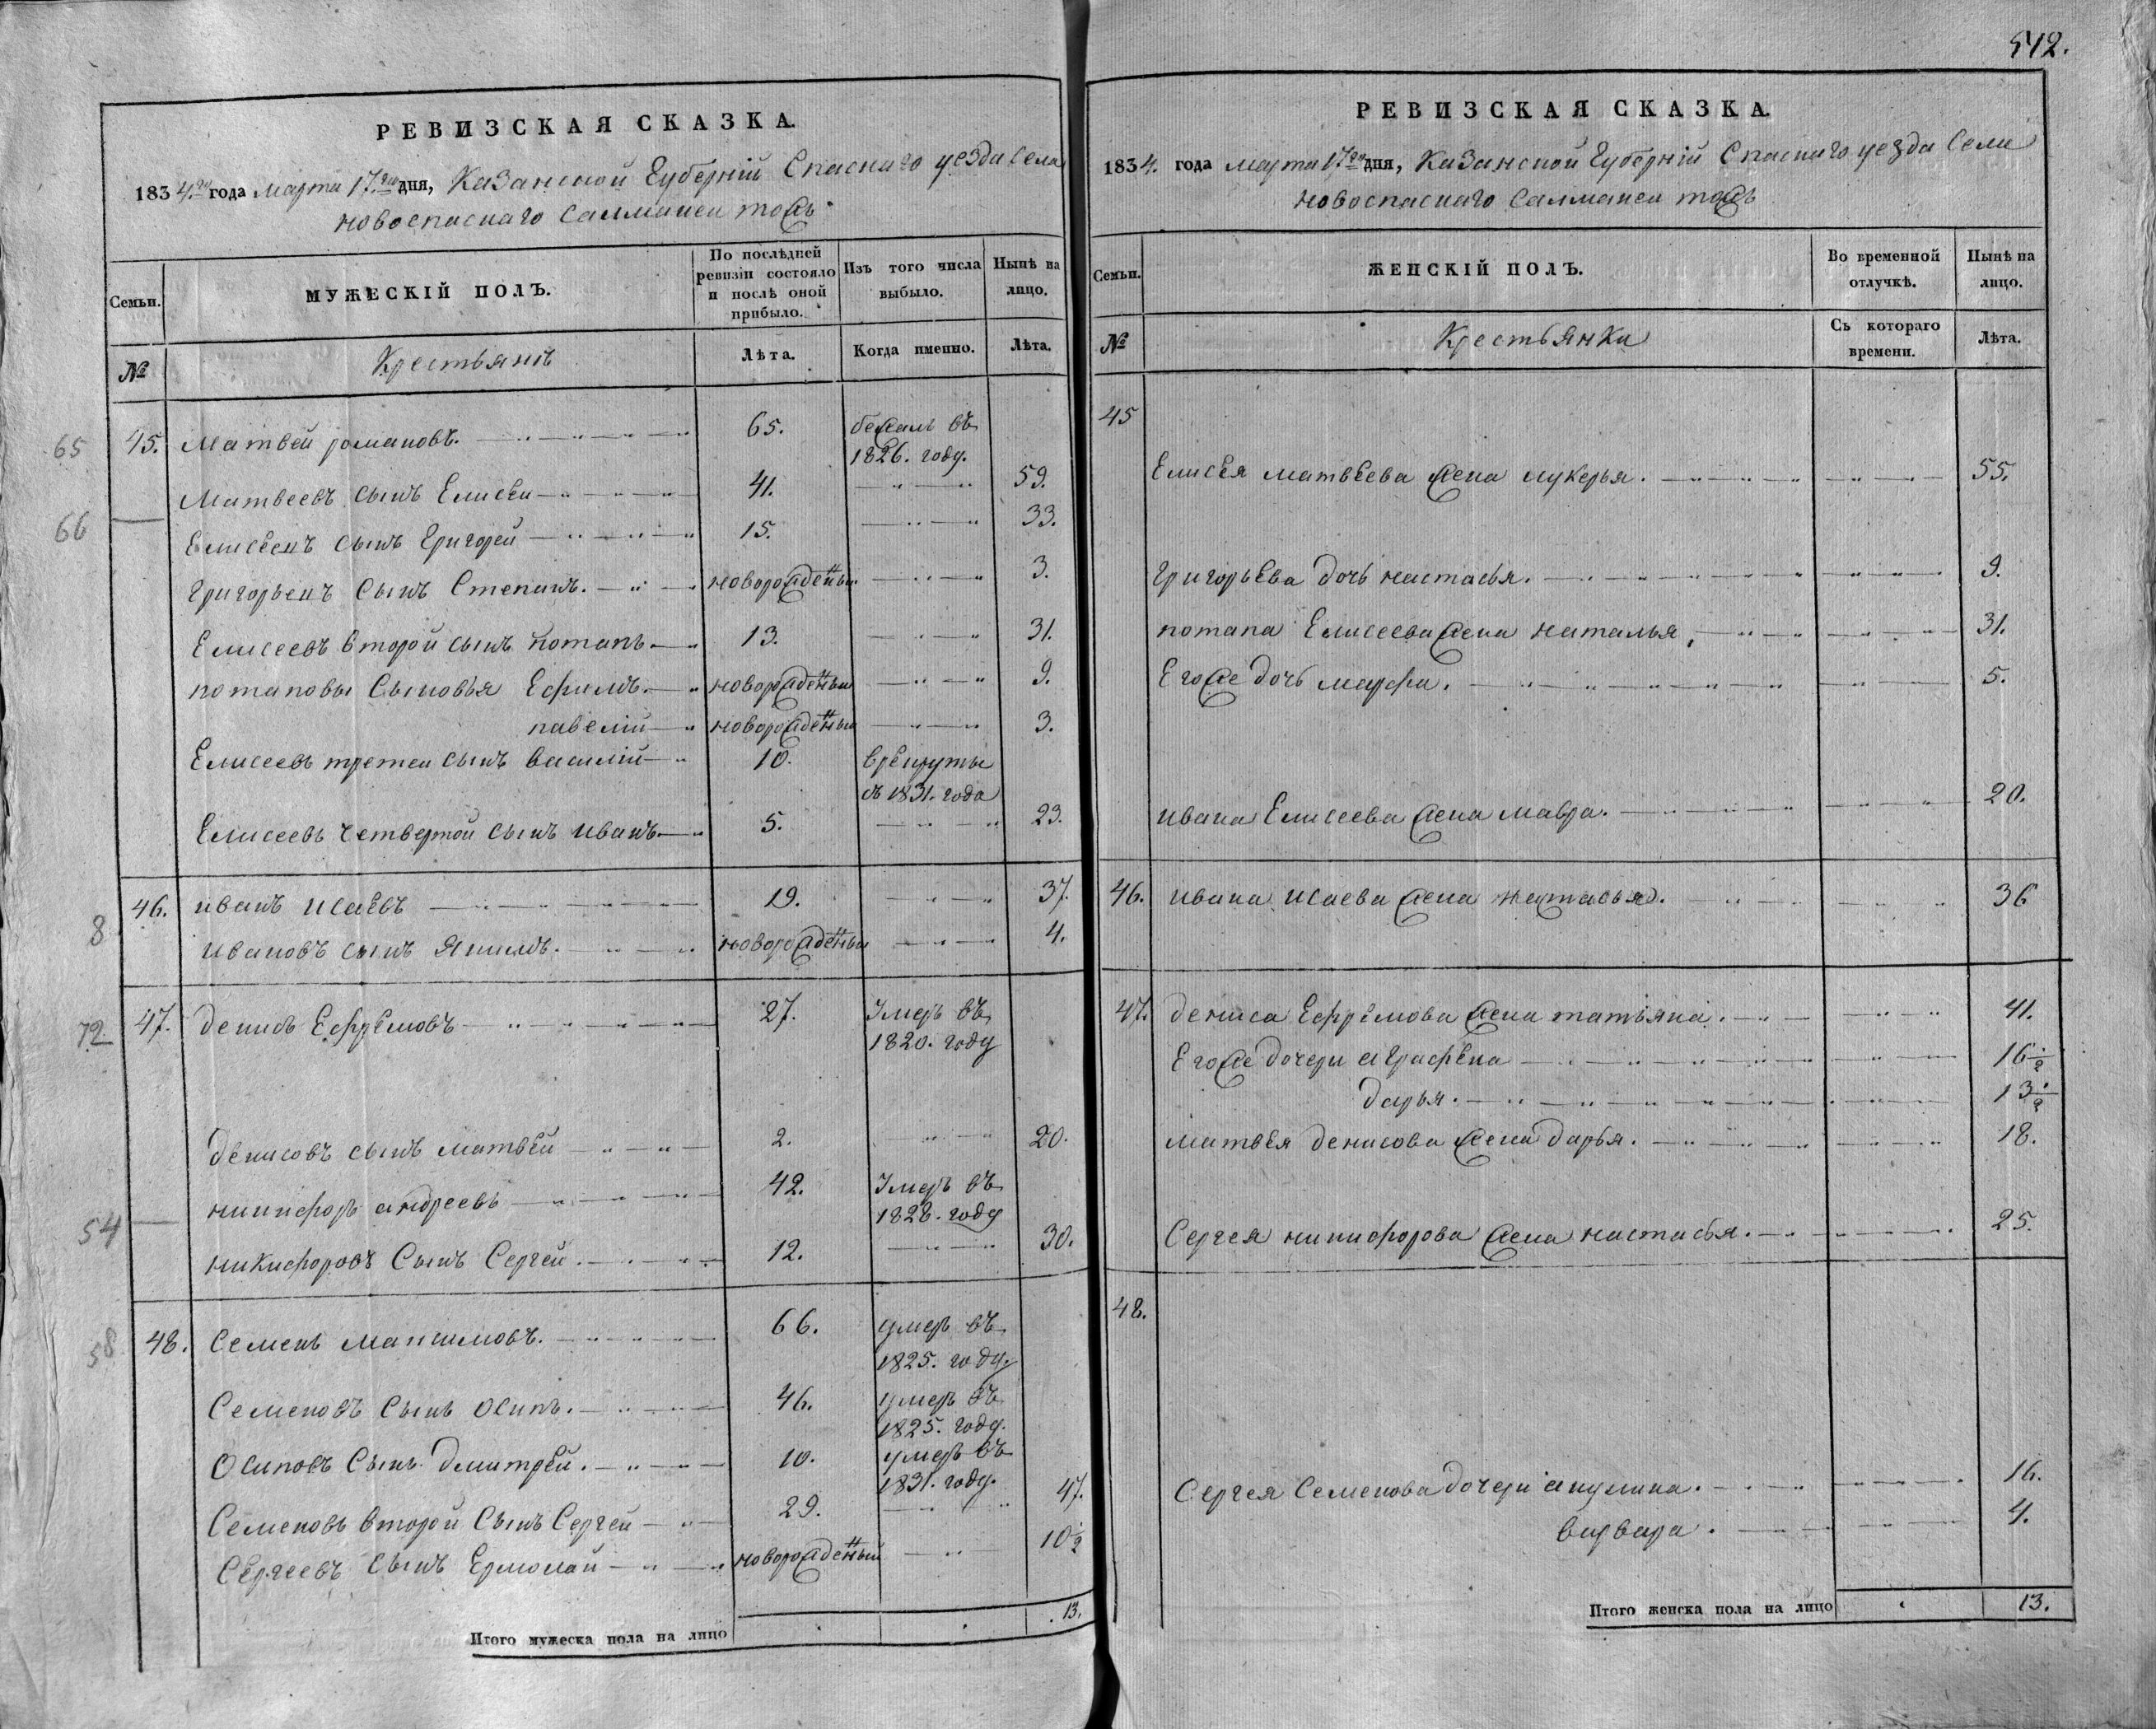 542.
РЕВИЗСКАЯ СКАЗКА.
1834.го года марта 17.го дня, Казанской Губерніи Спаскаго уезда Села
новоспаскаго Салманеи тожъ
Семьи.
МУЖЕСКІЙ ПОЛЪ.
По послѣдней ревизіи состояло и послѣ оной прибыло.
Изъ того числа выбыло.
Нынѣ на лицо.
№
Крестьянѣ
Лѣта.
Когда именно.
Лѣта.
65 45. Матвей романовъ. 65. бежалъ въ 1826. году.
Матвеевъ сынъ Елисеи 41. 59.
66 Елисеевъ сынъ Григореи 15. 33.
Григорьевъ Сынъ Степанъ. новорожденыи 3.
Елисеевъ второй сынъ потапъ 13. 31.
потаповы Сыновья Ефимъ. новорожденыи 9.
новорожденыи 3.
Елисеевъ третеи сынъ василій 10. в рекруты съ 1831. года
Елисеевъ четвертой сынъ иванъ 5. 23.
8 46. иванъ исаевъ 19. 37.
ивановъ сынъ Якимъ. новорожденыи 4.
72 47. денисъ Ефремовъ 27. Умеръ въ 1820. году
денисовъ сынъ матвѣй 2. 20.
54 никифоръ андреевъ 42. Умеръ въ 1828. году
никифоровъ Сынъ Сергей. 12. 30.
58 48. Семенъ максимовъ. 66. умеръ въ 1825. году.
Семеновъ Сынъ осипъ. 46. умеръ въ 1825. году.
Осиповъ Сынъ дмитрей. 10. умеръ въ 1831. году.
Семеновъ второй Сынъ Сергей 29. 47.
Сергеевъ сынъ Ермолаи новорожденый 10 1/2
Итого мужеска пола на лицо 13.
РЕВИЗСКАЯ СКАЗКА.
1834. года марта 17го дня, Казанской Губерніи Спаскаго уезда Села
новоспаскаго Салманеи тожъ
Семьи.
ЖЕНСКІЙ ПОЛЪ.
Во временной отлучкѣ.
Нынѣ на лицо.
№
Крестьянки
Съ котораго времени.
Лѣта.
45
Елисея матвеева жена лукерья. 55.
Григорьева дочь настасья. 9.
потапа Елисеева жена наталья, 31.
Егоже дочь марфа. 5.
ивана Елисеева жена мавра. 20.
46. ивана исаева жена настасья. 36
47. дениса Ефремова жена татьяна. 41.
Егоже дочери аграфена 16 1/2
дарья. 13 1/2
матвея денисова жена дарья. 18.
Сергея никифорова жена настасья. 25.
48.
Сергея Семенова дочери акулина. 16.
варвара. 4.
Итого женска пола на лицо 13.